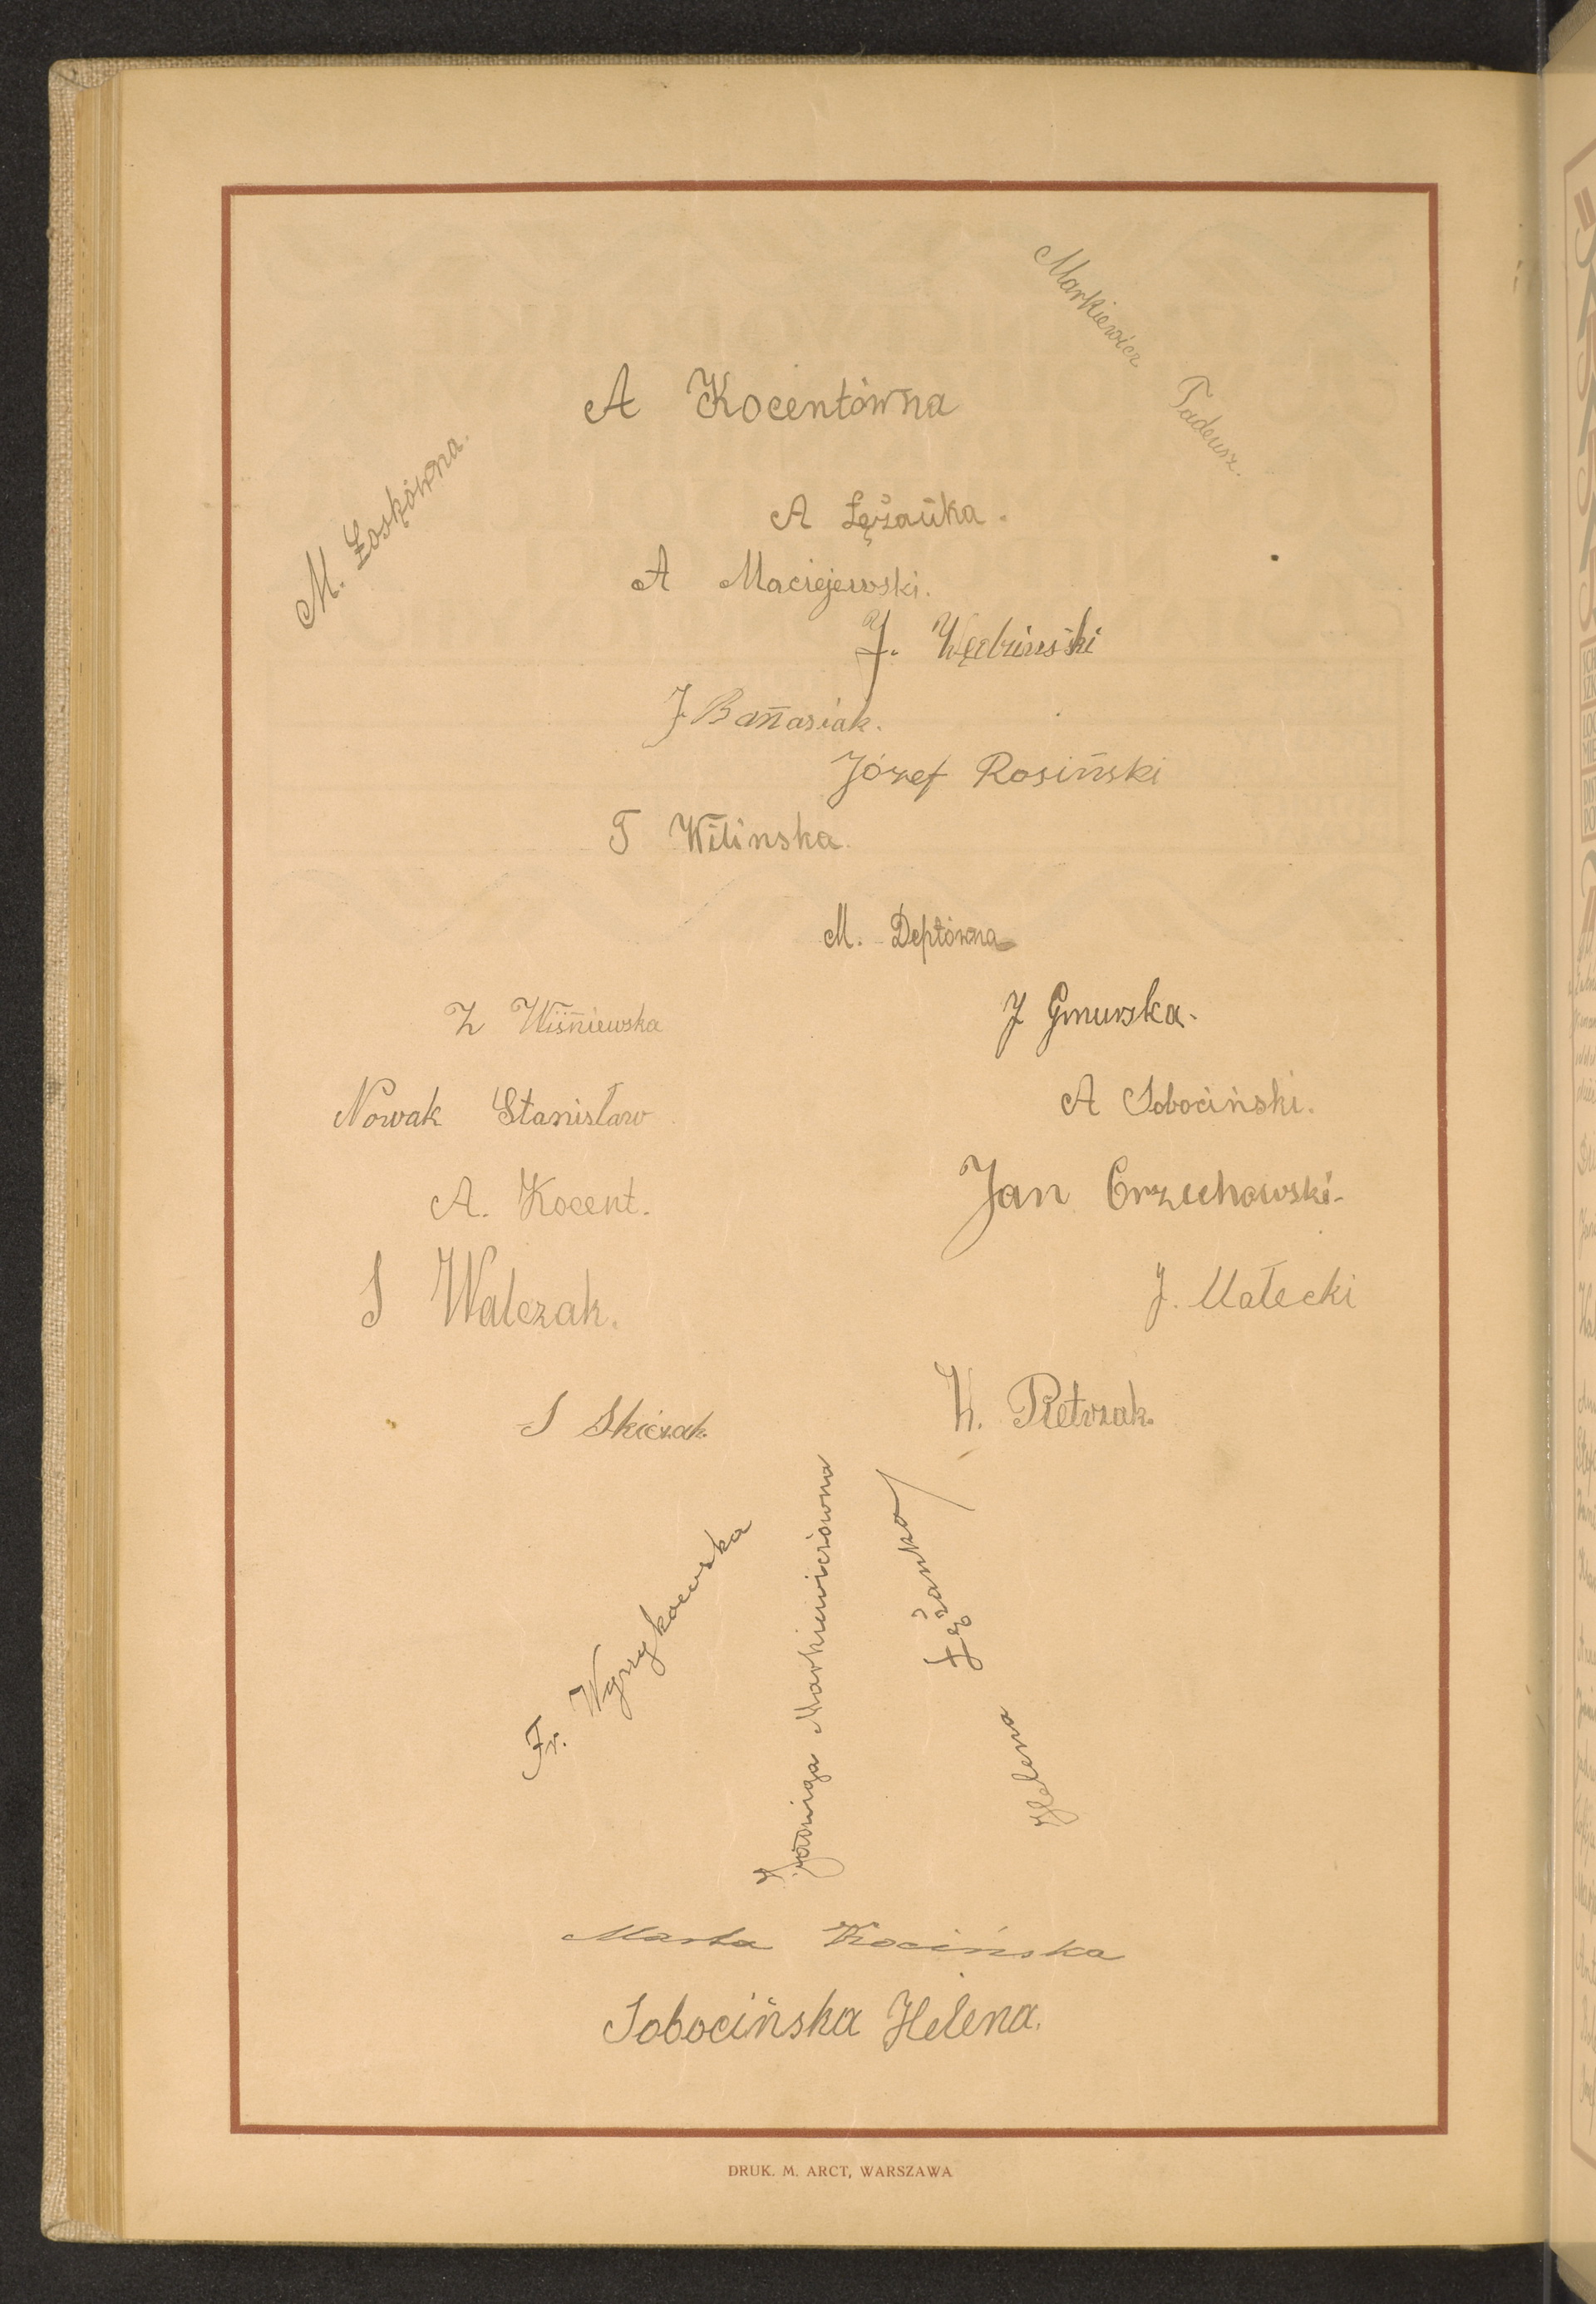 Markiewicz Tadeusz.
A Kocentówna
M. Łoskówna.
A Łężanka.
A Maciejewski.
J. Wędzinski
J. Banasiak.
Józef Rosiński
T Wilinska.
M. Deptówna
Z Wiśniewska
J Gmurska.
Nowak Stanisław
A Sobociński.
A. Kocent.
Jan Orzechowski.
S Walczak.
J. Małecki
S Skiczak.
W. Pietrzak.
Fr. Wyrzykowska
Jadwiga Markiewiczówna
Helena Łężanka
Marta Kocińska
Sobocińska Helena.
DRUK. M. ARCT, WARSZAWA